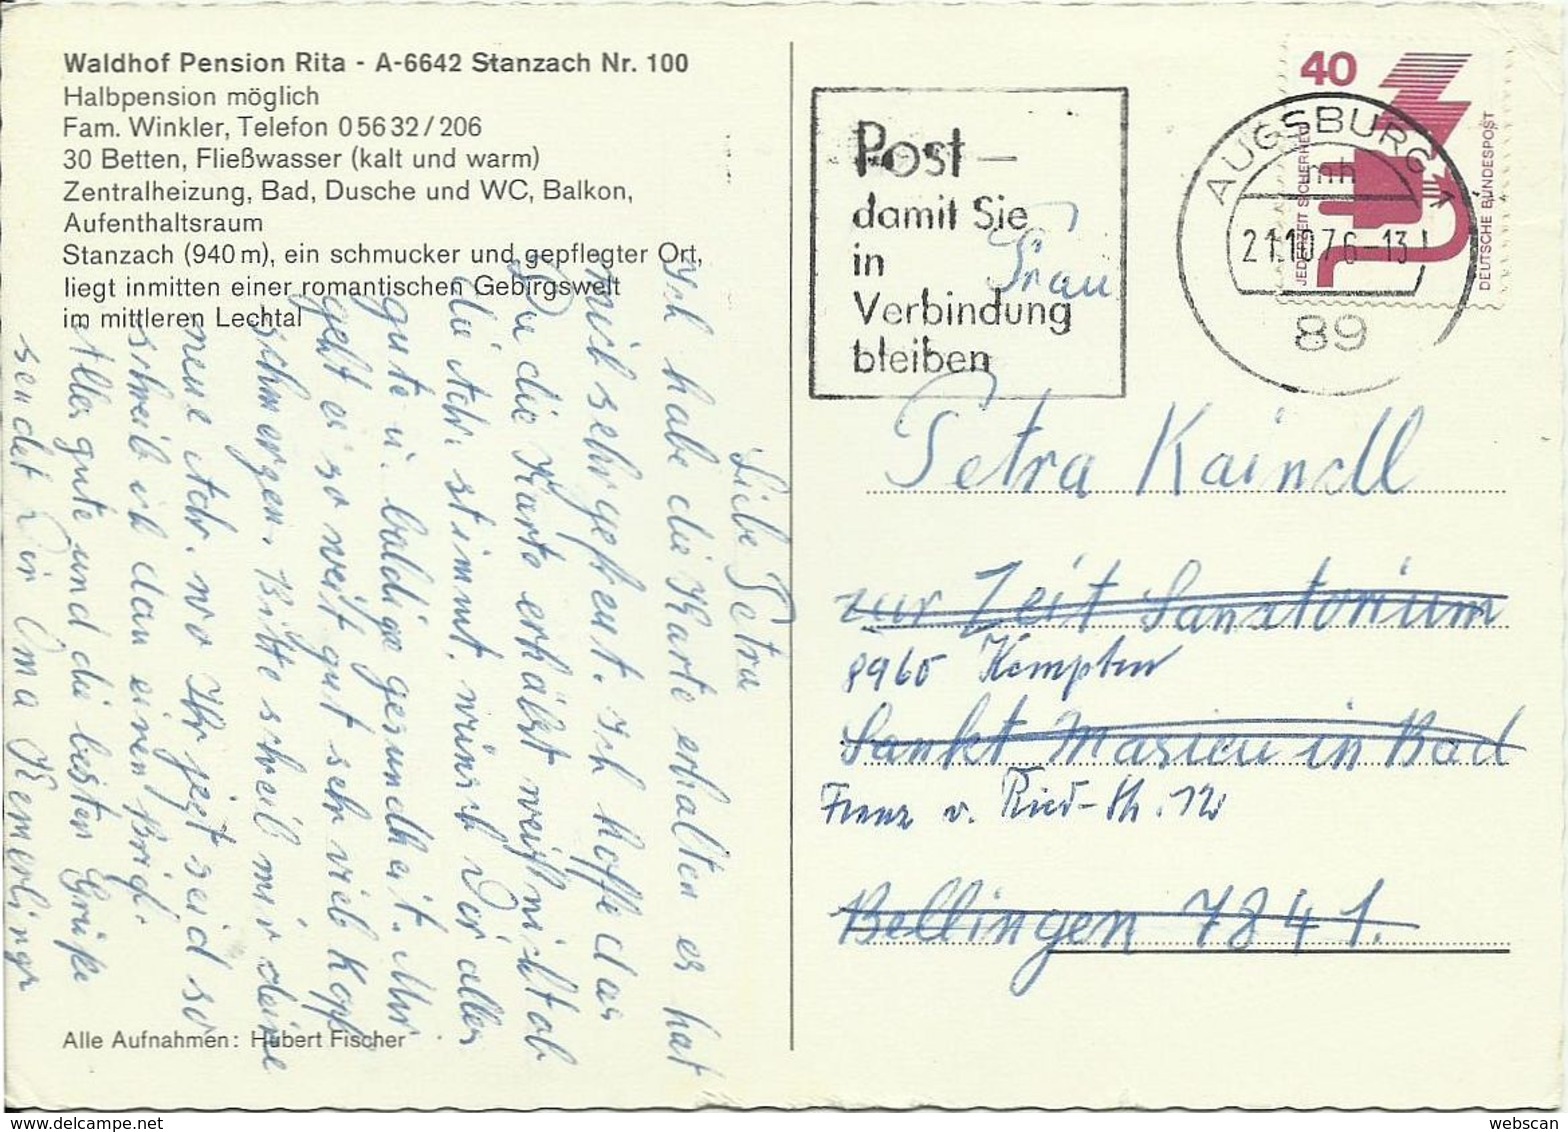 Waldhof Pension Rita - A-6642 Stanzach Nr. 100
Halbpension möglich
Fam. Winkler, Telefon 05632/206
30 Betten, Fließwasser (kalt und warm)
Zentralheizung, Bad, Dusche und WC, Balkon,
Aufenthaltsraum
Stanzach (940 m), ein schmucker und gepflegter Ort,
liegt inmitten einer romantischen Gebirgswelt
im mittleren Lechtal
Liebe Petra
Ich habe die Karte erhalten es hat
mich sehr gefreut. Ich hoffe das
Du die Karte erhälst weiß nicht ob
die Adr. stimmt. wünsch Dir alles
gute u. baldige gesundheit. Mir
geht es so weit gut sehr viel Kopf
schmerzen. Bitte schreib mir deine
neue Adr. wo Ihr jezt seid so
schreib ich dan einen Brief.
Alles gute und die besten Grüße
sendet Dir Oma Kemerlingr
Alle Aufnahmen: Hubert Fischer
Post –
damit Sie
in
Verbindung
bleiben
AUGSBURG 1
mh
21.10.76-13
89
40
JEDERZEIT SICHERHEIT
DEUTSCHE BUNDESPOST
Frau
Petra Kaindl
zur Zeit Sanatorium
8960 Kempten
Sankt Marien in Bad
Franz v. Ried-Str. 12
Bellingen 7841.
webscan